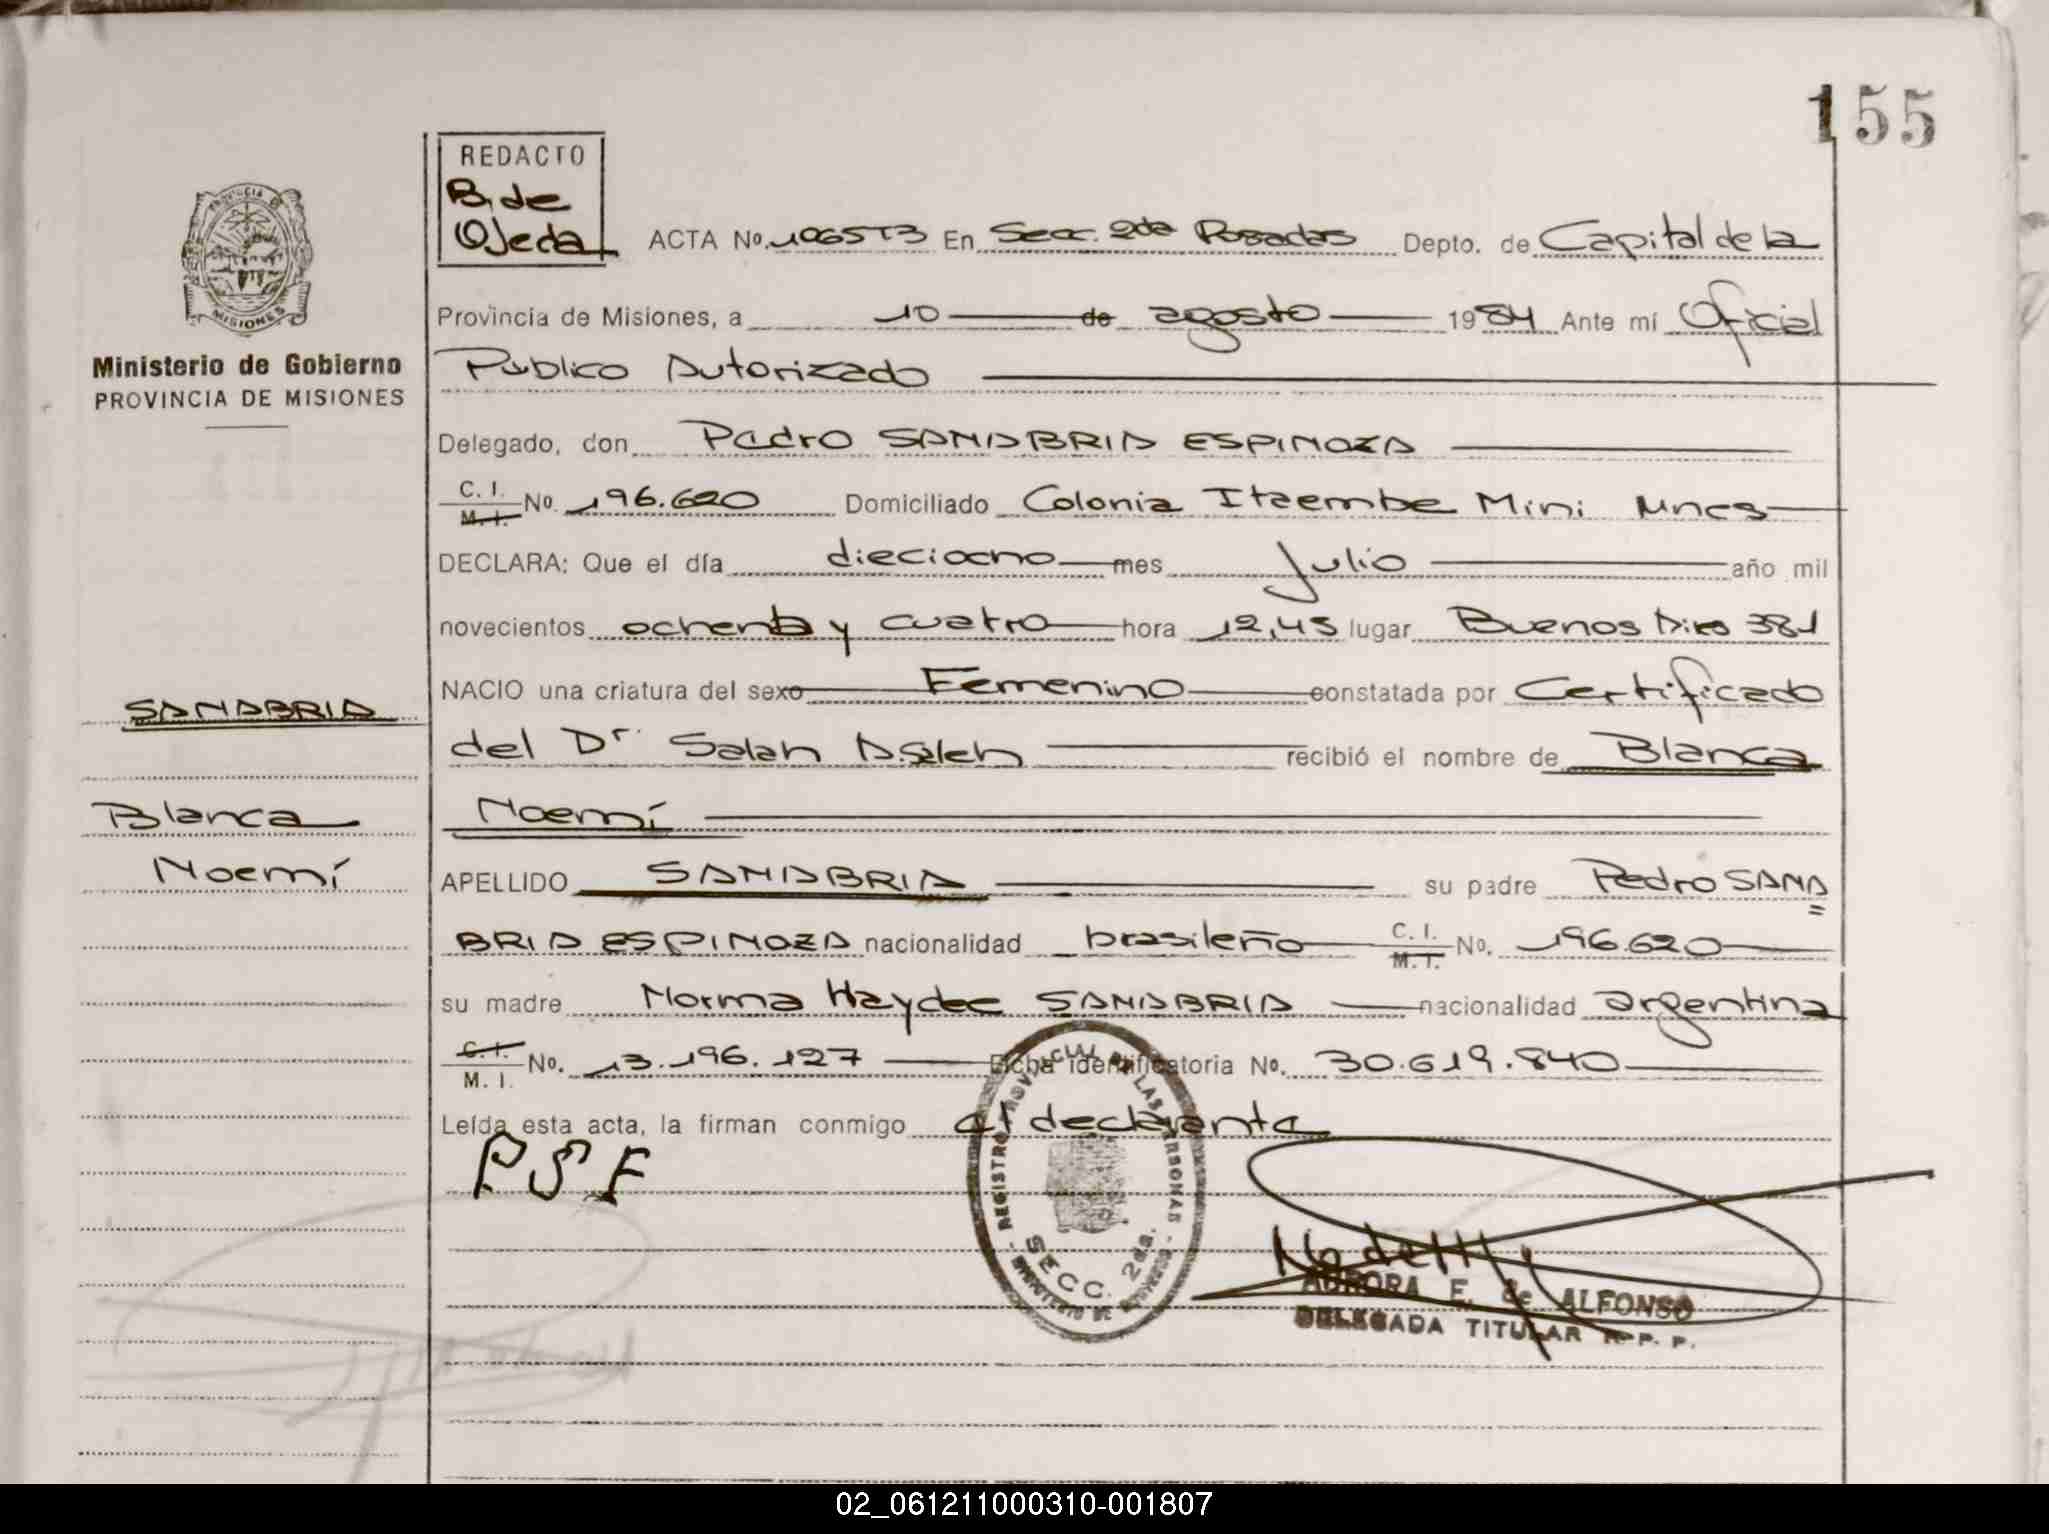 155
REDACTO
B. de
Ojeda
ACTA No. 1065T3 En Secc. 2da Posadas Depto. de Capital de la
Provincia de Misiones, a 10 de agosto 1984 Ante mí Oficial
Público Autorizado
Delegado, don Pedro SANABRIA ESPINOZA
C. I. M. I. No. 196.620 Domiciliado Colonia Itaembe Mini Mnes
DECLARA: Que el día dieciocho mes Julio año mil
novecientos ochenta y cuatro hora 12,45 lugar Buenos Aires 381
NACIO una criatura del sexo Femenino constatada por Certificado
del Dr. Salah A. Saleh recibió el nombre de Blanca
Noemí
APELLIDO SANABRIA su padre Pedro SANA
BRIA ESPINOZA nacionalidad brasileño C. I. M. I. No. 196.620
su madre Norma Haydee SANABRIA nacionalidad argentina
C. I. M. I. No. 13.196.127 Ficha identificatoria No. 30.619.840
Leída esta acta, la firman conmigo el declarante
P S E
AURORA E. de ALFONSO
DELEGADA TITULAR R. P. P.
REGISTRO PROVINCIAL DE LAS PERSONAS
SECC. 2da.
MINISTERIO DE GOBIERNO
PROVINCIA DE
MISIONES
Ministerio de Gobierno
PROVINCIA DE MISIONES
SANABRIA
Blanca
Noemí
02_061211000310-001807